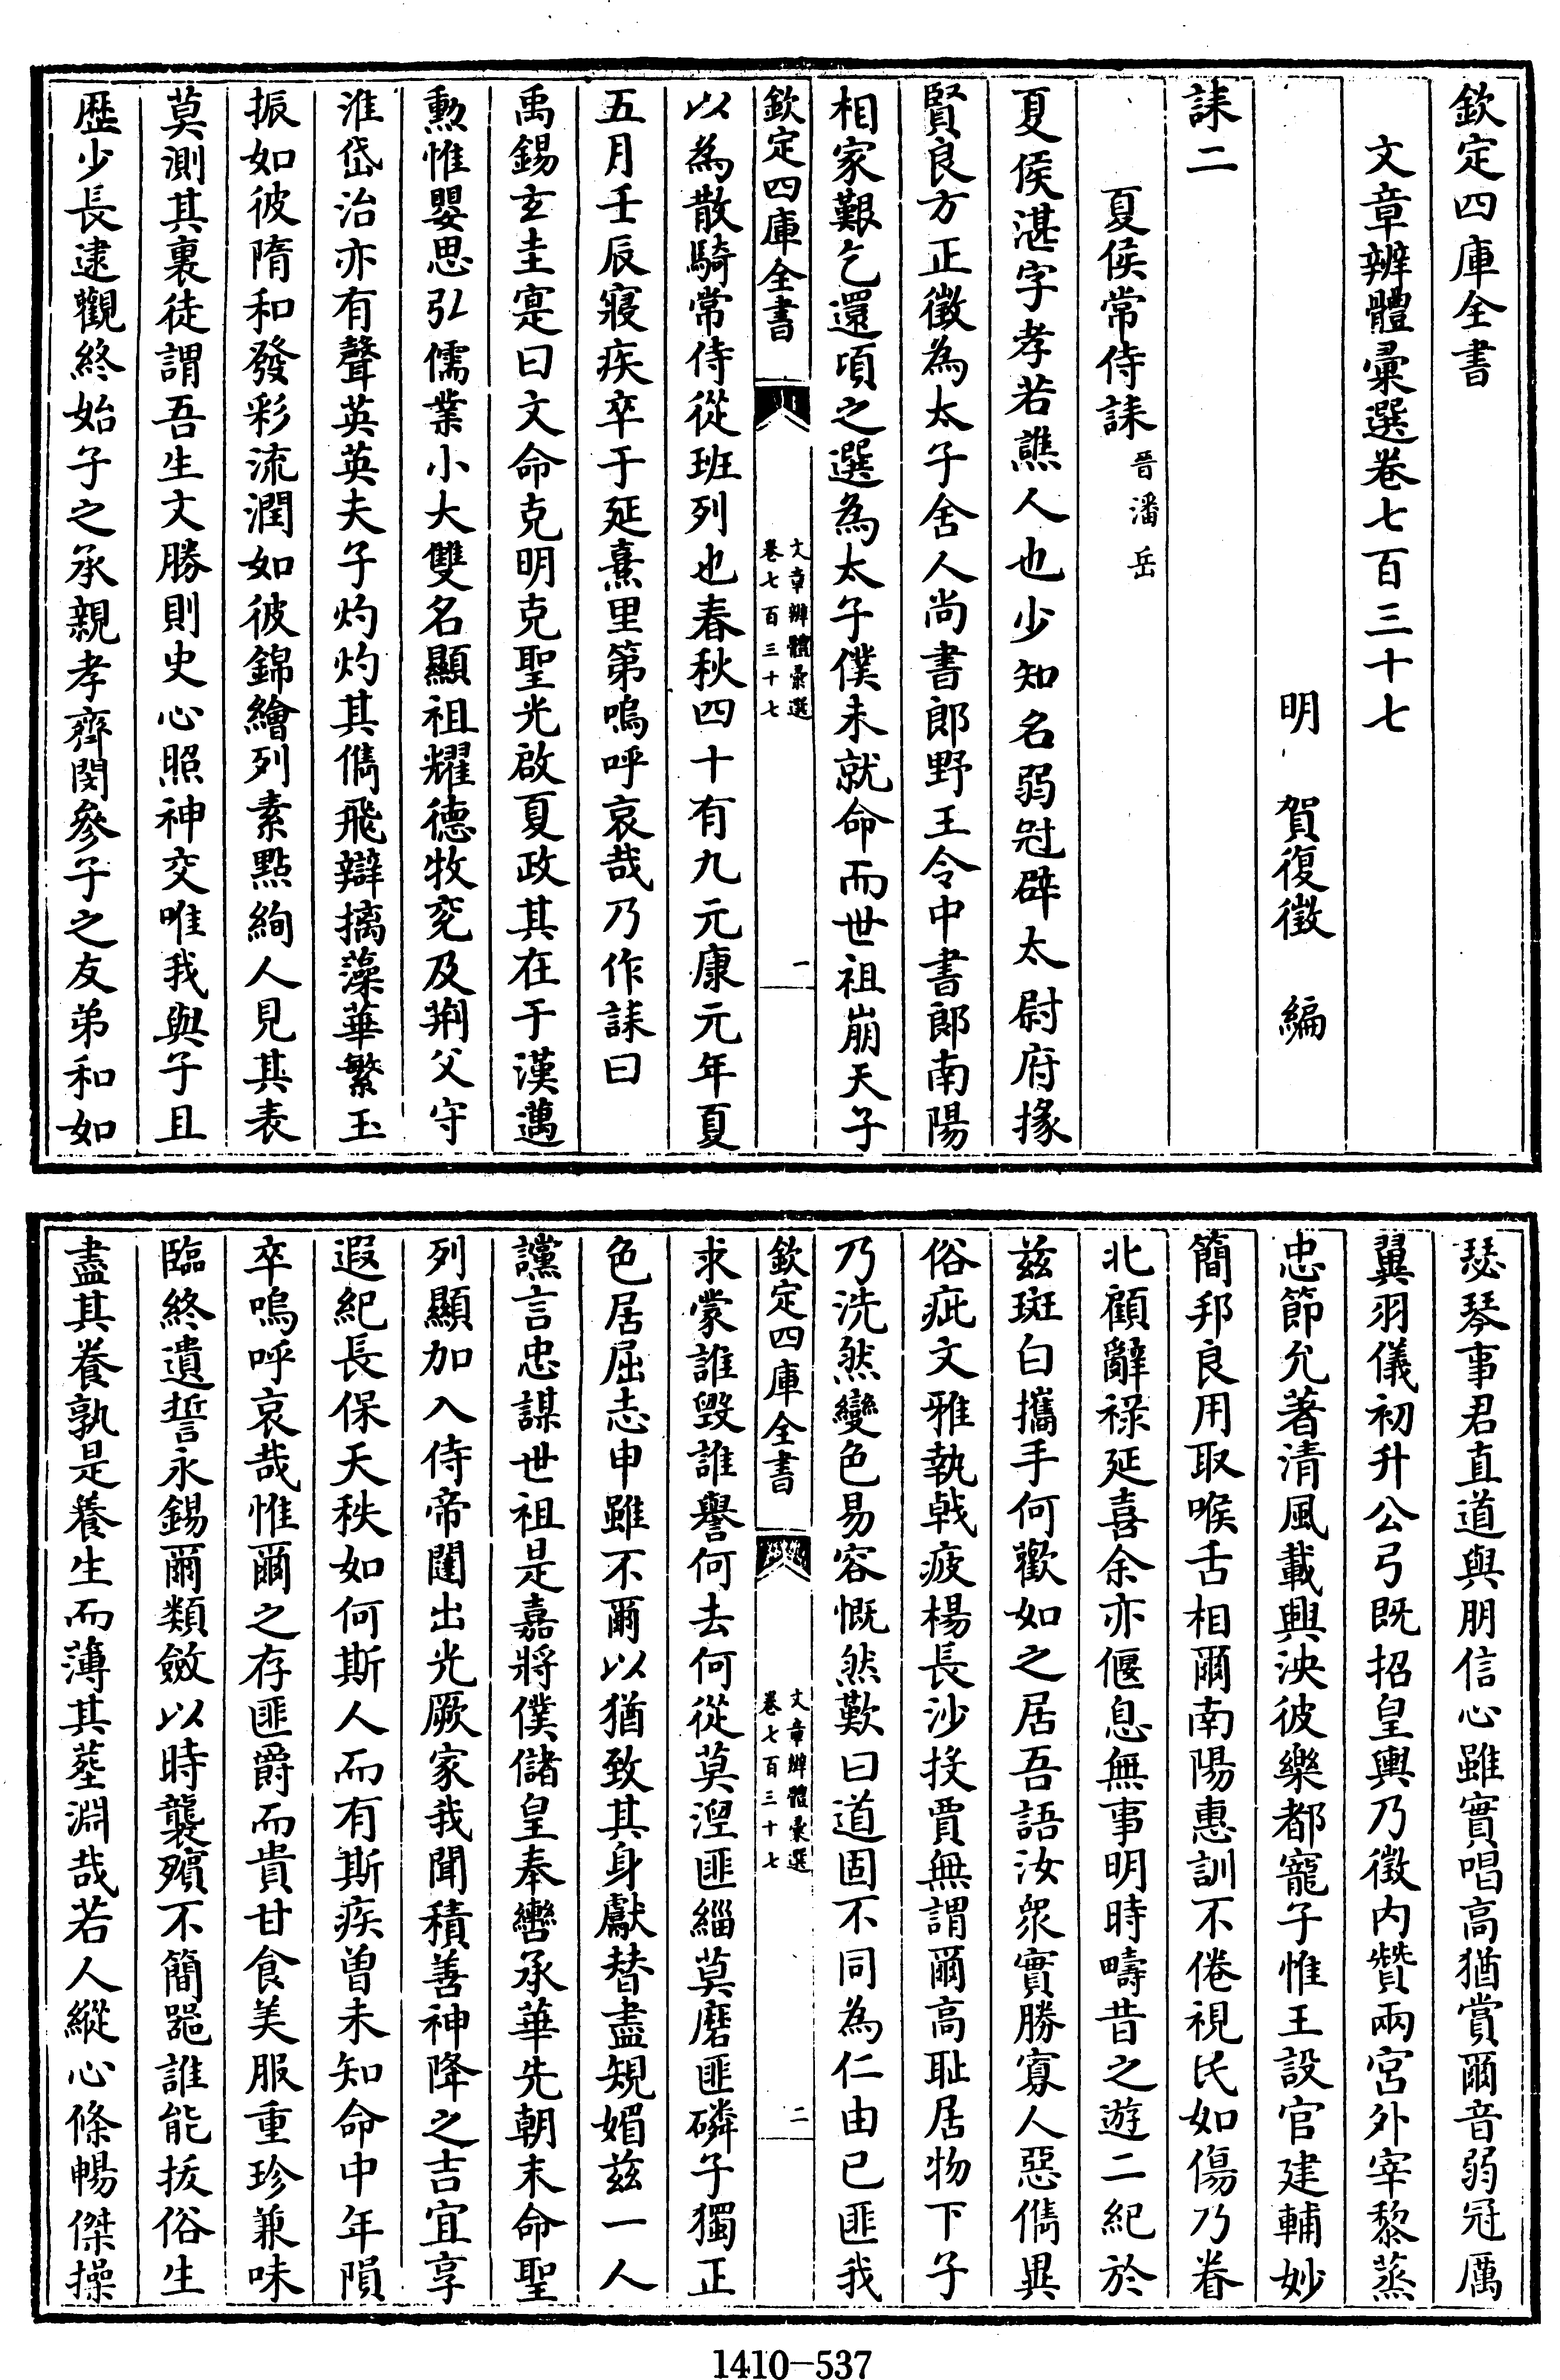 欽定四庫全書
文章辨體彚選卷七百三十七
明 賀復徵 編
誄二
夏侯常侍誄 晉潘岳
夏侯湛字孝若譙人也少知名弱冠辟太尉府掾
賢良方正徵為太子舍人尚書郎野王令中書郎南陽
相家艱乞還頃之選為太子僕未就命而世祖崩天子
欽定四庫全書 文章辨體彚選 卷七百三十七 一
以為散騎常侍從班列也春秋四十有九元康元年夏
五月壬辰寢疾卒于延熹里第嗚呼哀哉乃作誄曰
禹錫玄圭寔曰文命克明克聖光啟夏政其在于漢邁
勳惟嬰思弘儒業小大雙名顯祖耀德牧兖及荆父守
淮岱治亦有聲英英夫子灼灼其儁飛辯摛藻華繁玉
振如彼隋和發彩流潤如彼錦繪列素點絢人見其表
莫測其裏徒謂吾生文勝則史心照神交唯我與子且
歴少長逮觀終始子之承親孝齊閔參子之友弟和如
瑟琴事君直道與朋信心雖實唱高猶賞爾音弱冠厲
翼羽儀初升公弓既招皇輿乃徵内贊兩宮外宰黎蒸
忠節允著清風載興泱彼樂都寵子惟王設官建輔妙
簡邦良用取喉舌相爾南陽惠訓不倦視民如傷乃眷
北顧辭祿延喜余亦偃息無事明時疇昔之遊二紀於
兹斑白攜手何歡如之居吾語汝衆實勝寡人惡儁異
俗疵文雅執戟疲楊長沙投賈無謂爾高耻居物下子
乃洗然變色易容慨然歎曰道固不同為仁由已匪我
欽定四庫全書 文章辨體彚選 卷七百三十七 二
求蒙誰毁誰譽何去何從莫涅匪緇莫磨匪磷子獨正
色居屈志申雖不爾以猶致其身獻替盡規媚兹一人
讜言忠謀世祖是嘉將僕儲皇奉轡承華先朝末命聖
列顯加入侍帝闈出光厥家我聞積善神降之吉宜享
遐紀長保天秩如何斯人而有斯疾曾未知命中年隕
卒嗚呼哀哉惟爾之存匪爵而貴甘食美服重珍兼味
臨終遺誓永錫爾類斂以時襲殯不簡器誰能拔俗生
盡其養孰是養生而薄其葬淵哉若人縱心條暢傑操
1410-537